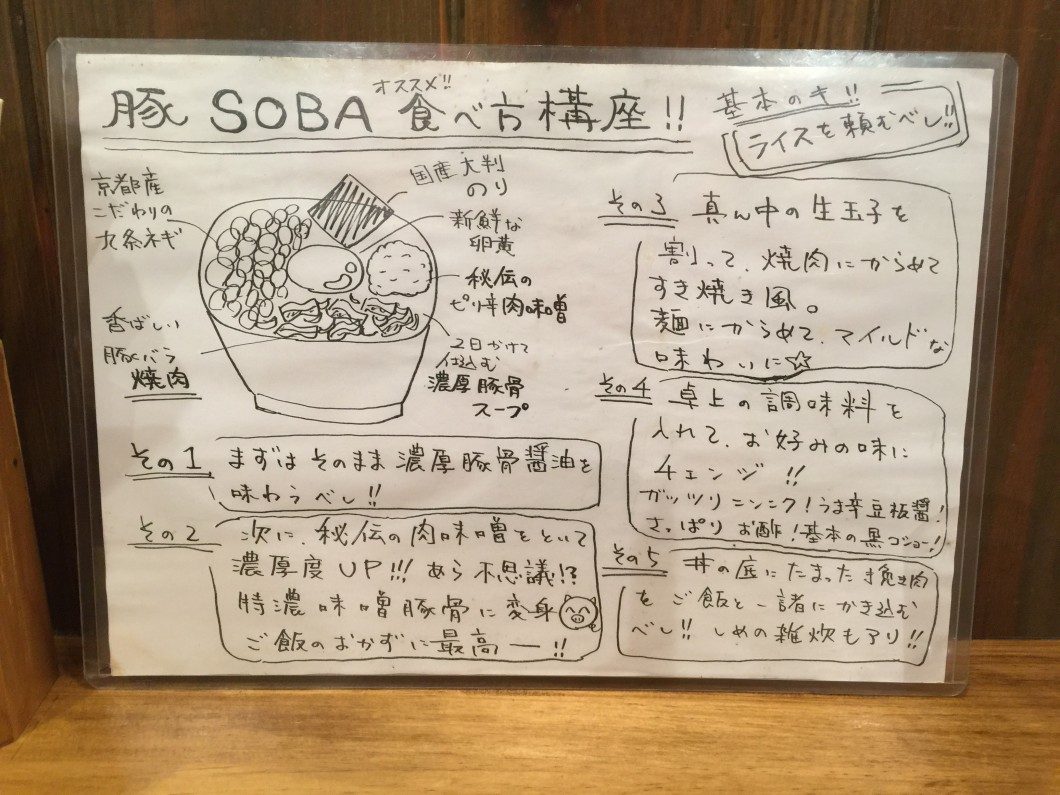 オススメ!!
豚 SOBA 食べ方構座!!
基本のキ!!
ライスを頼むべし!!
京都産
こだわりの
九条ネギ
香ばしい
豚バラ
焼肉
国産大判
のり
新鮮な
卵黄
秘伝の
ピリ辛肉味噌
2日かけて
仕込む
濃厚豚骨
スープ
その1 まずはそのまま濃厚豚骨醤油を
味わうべし!!
その2 次に、秘伝の肉味噌をといて
濃厚度UP!!! あら不思議!?
特濃味噌豚骨に変身
ご飯のおかずに最高ー!!
その3 真ん中の生玉子を
割って、焼肉にからめて
すき焼き風。
麺にからめて、マイルドな
味わいに☆
その4 卓上の調味料を
入れて、お好みの味に
チェンジ!!
ガッツリニンニク!うま辛豆板醤!
さっぱりお酢!基本の黒コショー!
その5 丼の底にたまった挽き肉
をご飯と一諸にかき込む
べし!! しめの雑炊もアリ!!